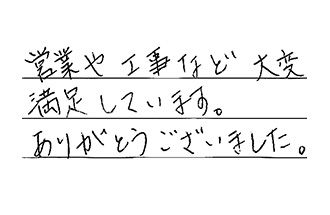 営業や工事など大変
満足しています。
ありがとうございました。